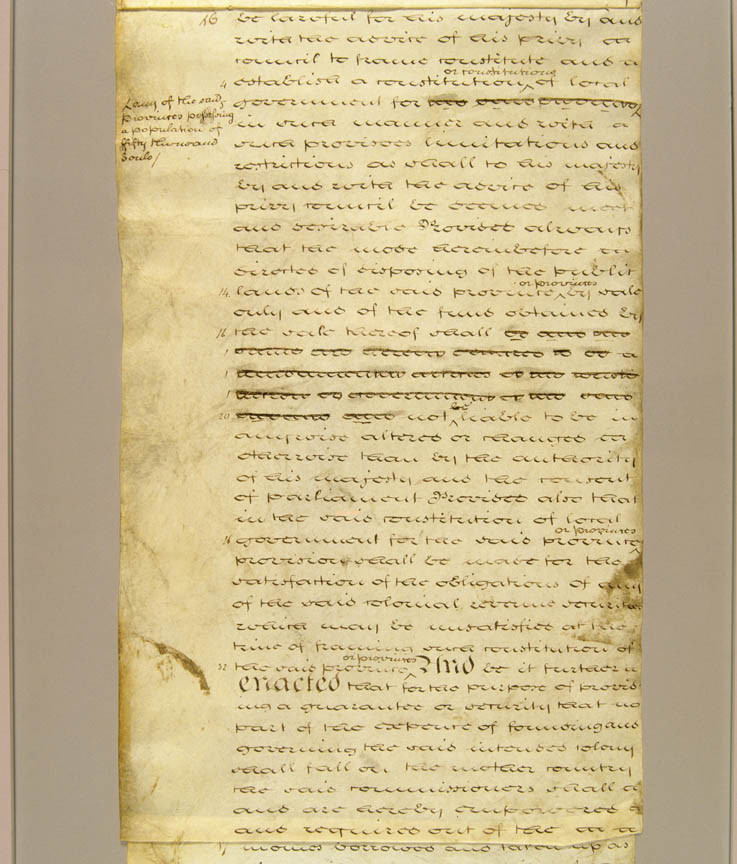 16 be lawful for his majesty by and
with the advice of his privy
council to frame constitute and
or constitutions
4 establish a constitution of local
government for the said provinces
any of the said
Provinces possessing
a population of
fifty thousand
Souls /
in such manner and with
such provisoes limitations and
restrictions as shall to his majesty
by and with the advice of his
privy council be deemed meet
and desirable Provided always
that the mode hereinbefore
directed of disposing of the public
or provinces
14 lands of the said province by sale
only and of the fund obtained by
16 the sale thereof shall be and
1
1
1
20 not be liable to be in
anywise altered or changed
otherwise than by the authority
of his majesty and the consent
of parliament Provided also that
in the said constitution of local
or provinces
16 government for the said province
provision shall be made for the
satisfaction of the obligations of any
of the said colonial revenue securities
which may be unsatisfied at the
time of framing such constitution of
or provinces
32 the said province And be it further
enacted that for the purpose of provid
ing a guarantee or security that no
part of the expence of founding and
governing the said intended colony
shall fall on the mother country
the said commissioners shall
and are hereby empowered
and required out of the
monies borrowed and taken up as